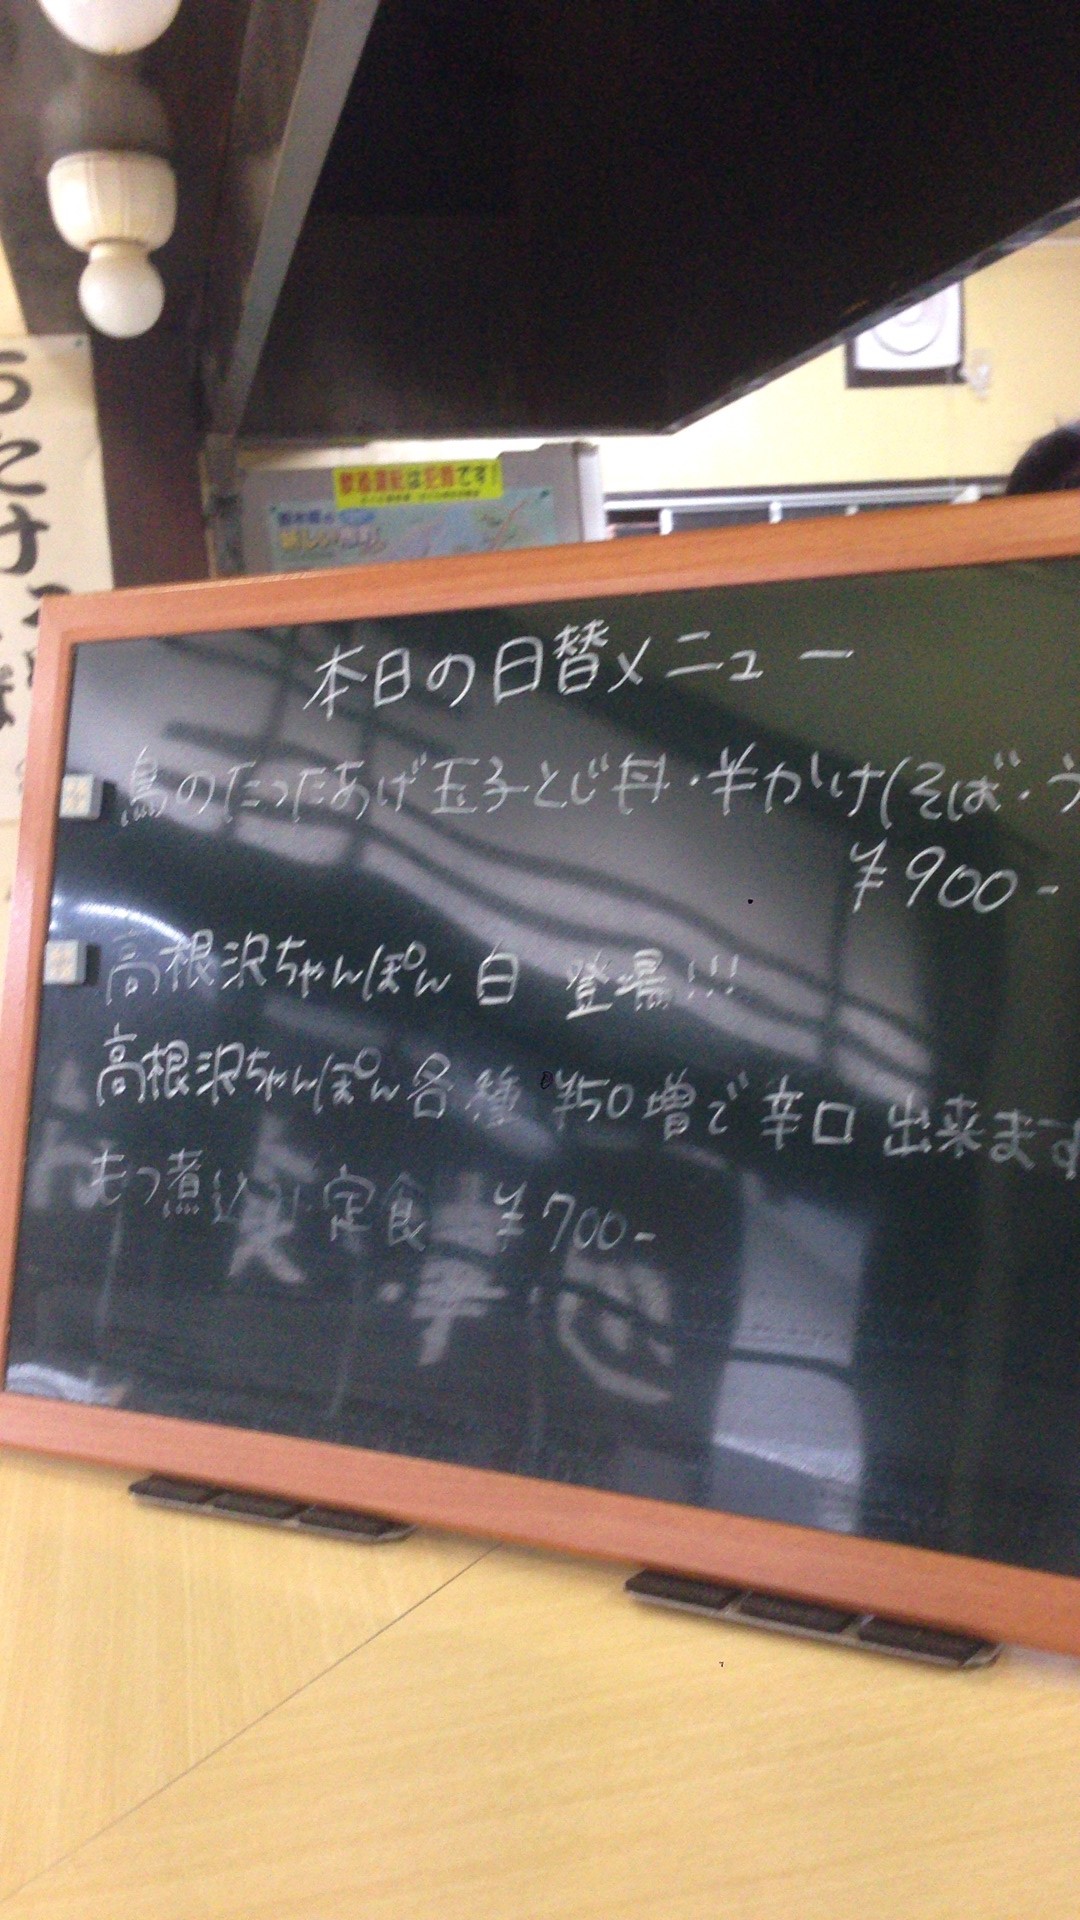 飲酒運転は犯罪です!
本日の日替メニュー
鳥のたつたあげ玉子とじ丼・半かけ(そば・う
¥900-
高根沢ちゃんぽん 白 登場!!!
高根沢ちゃんぽん各種 ¥50増で辛口 出来ます
もつ煮込み 定食 ¥700-